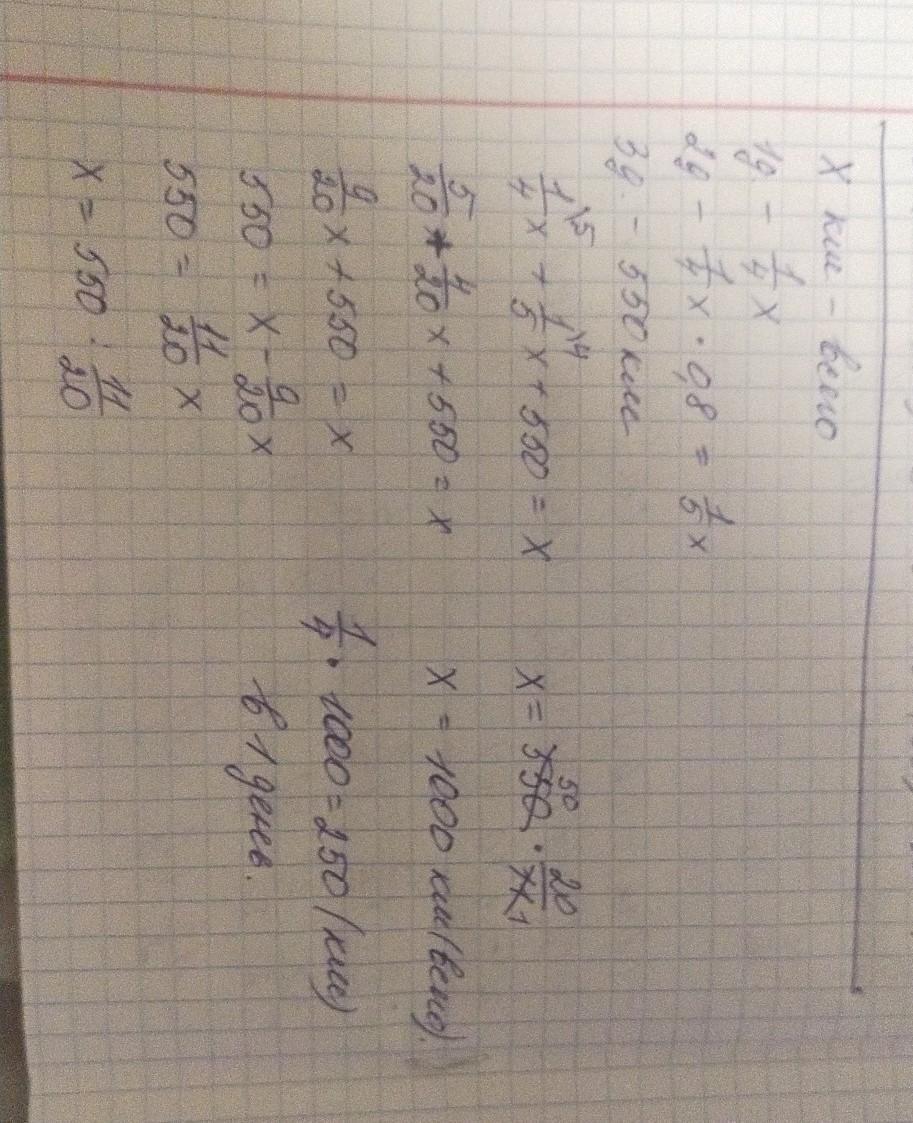 x км - всего
1д - 1/4 x
2д - 1/4 x · 0,8 = 1/5 x
3д. - 550 км
1/4\5 x + 1/5\4 x + 550 = x
5/20 + 4/20 x + 550 = x
9/20 x + 550 = x
550 = x - 9/20 x
550 = 11/20 x
x = 550 : 11/20
x = 550 50 · 20/11 1
x = 1000 км (всего).
1/4 · 1000 = 250 (км)
в 1 день.